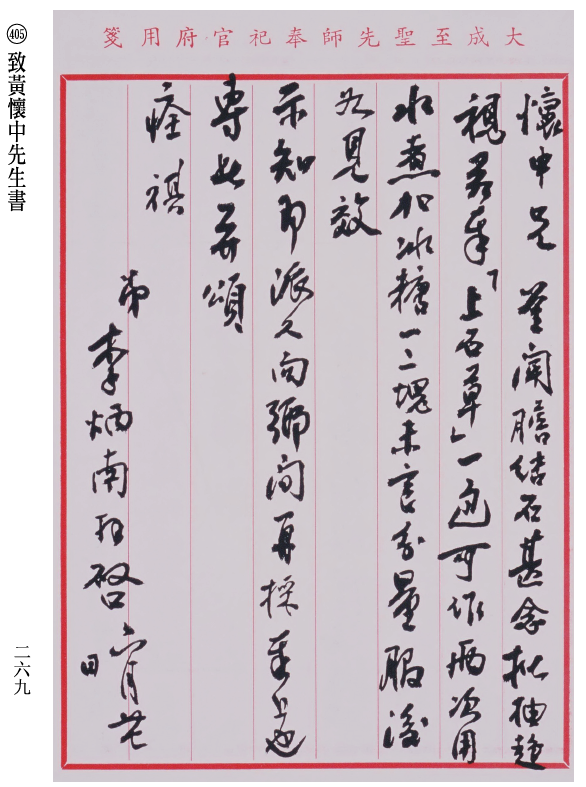 大成至聖先師奉祀官府用箋
405 致黃懷中先生書
懷中兄 聞膽結石甚念抽
奉「上石草」一包可作兩次用
水煮加冰糖一二塊未言分量服後
如見效
示知即派人向鄉間再採奉上也
專此並頌
痊祺
弟
李炳南啓六月廿
日
二六九